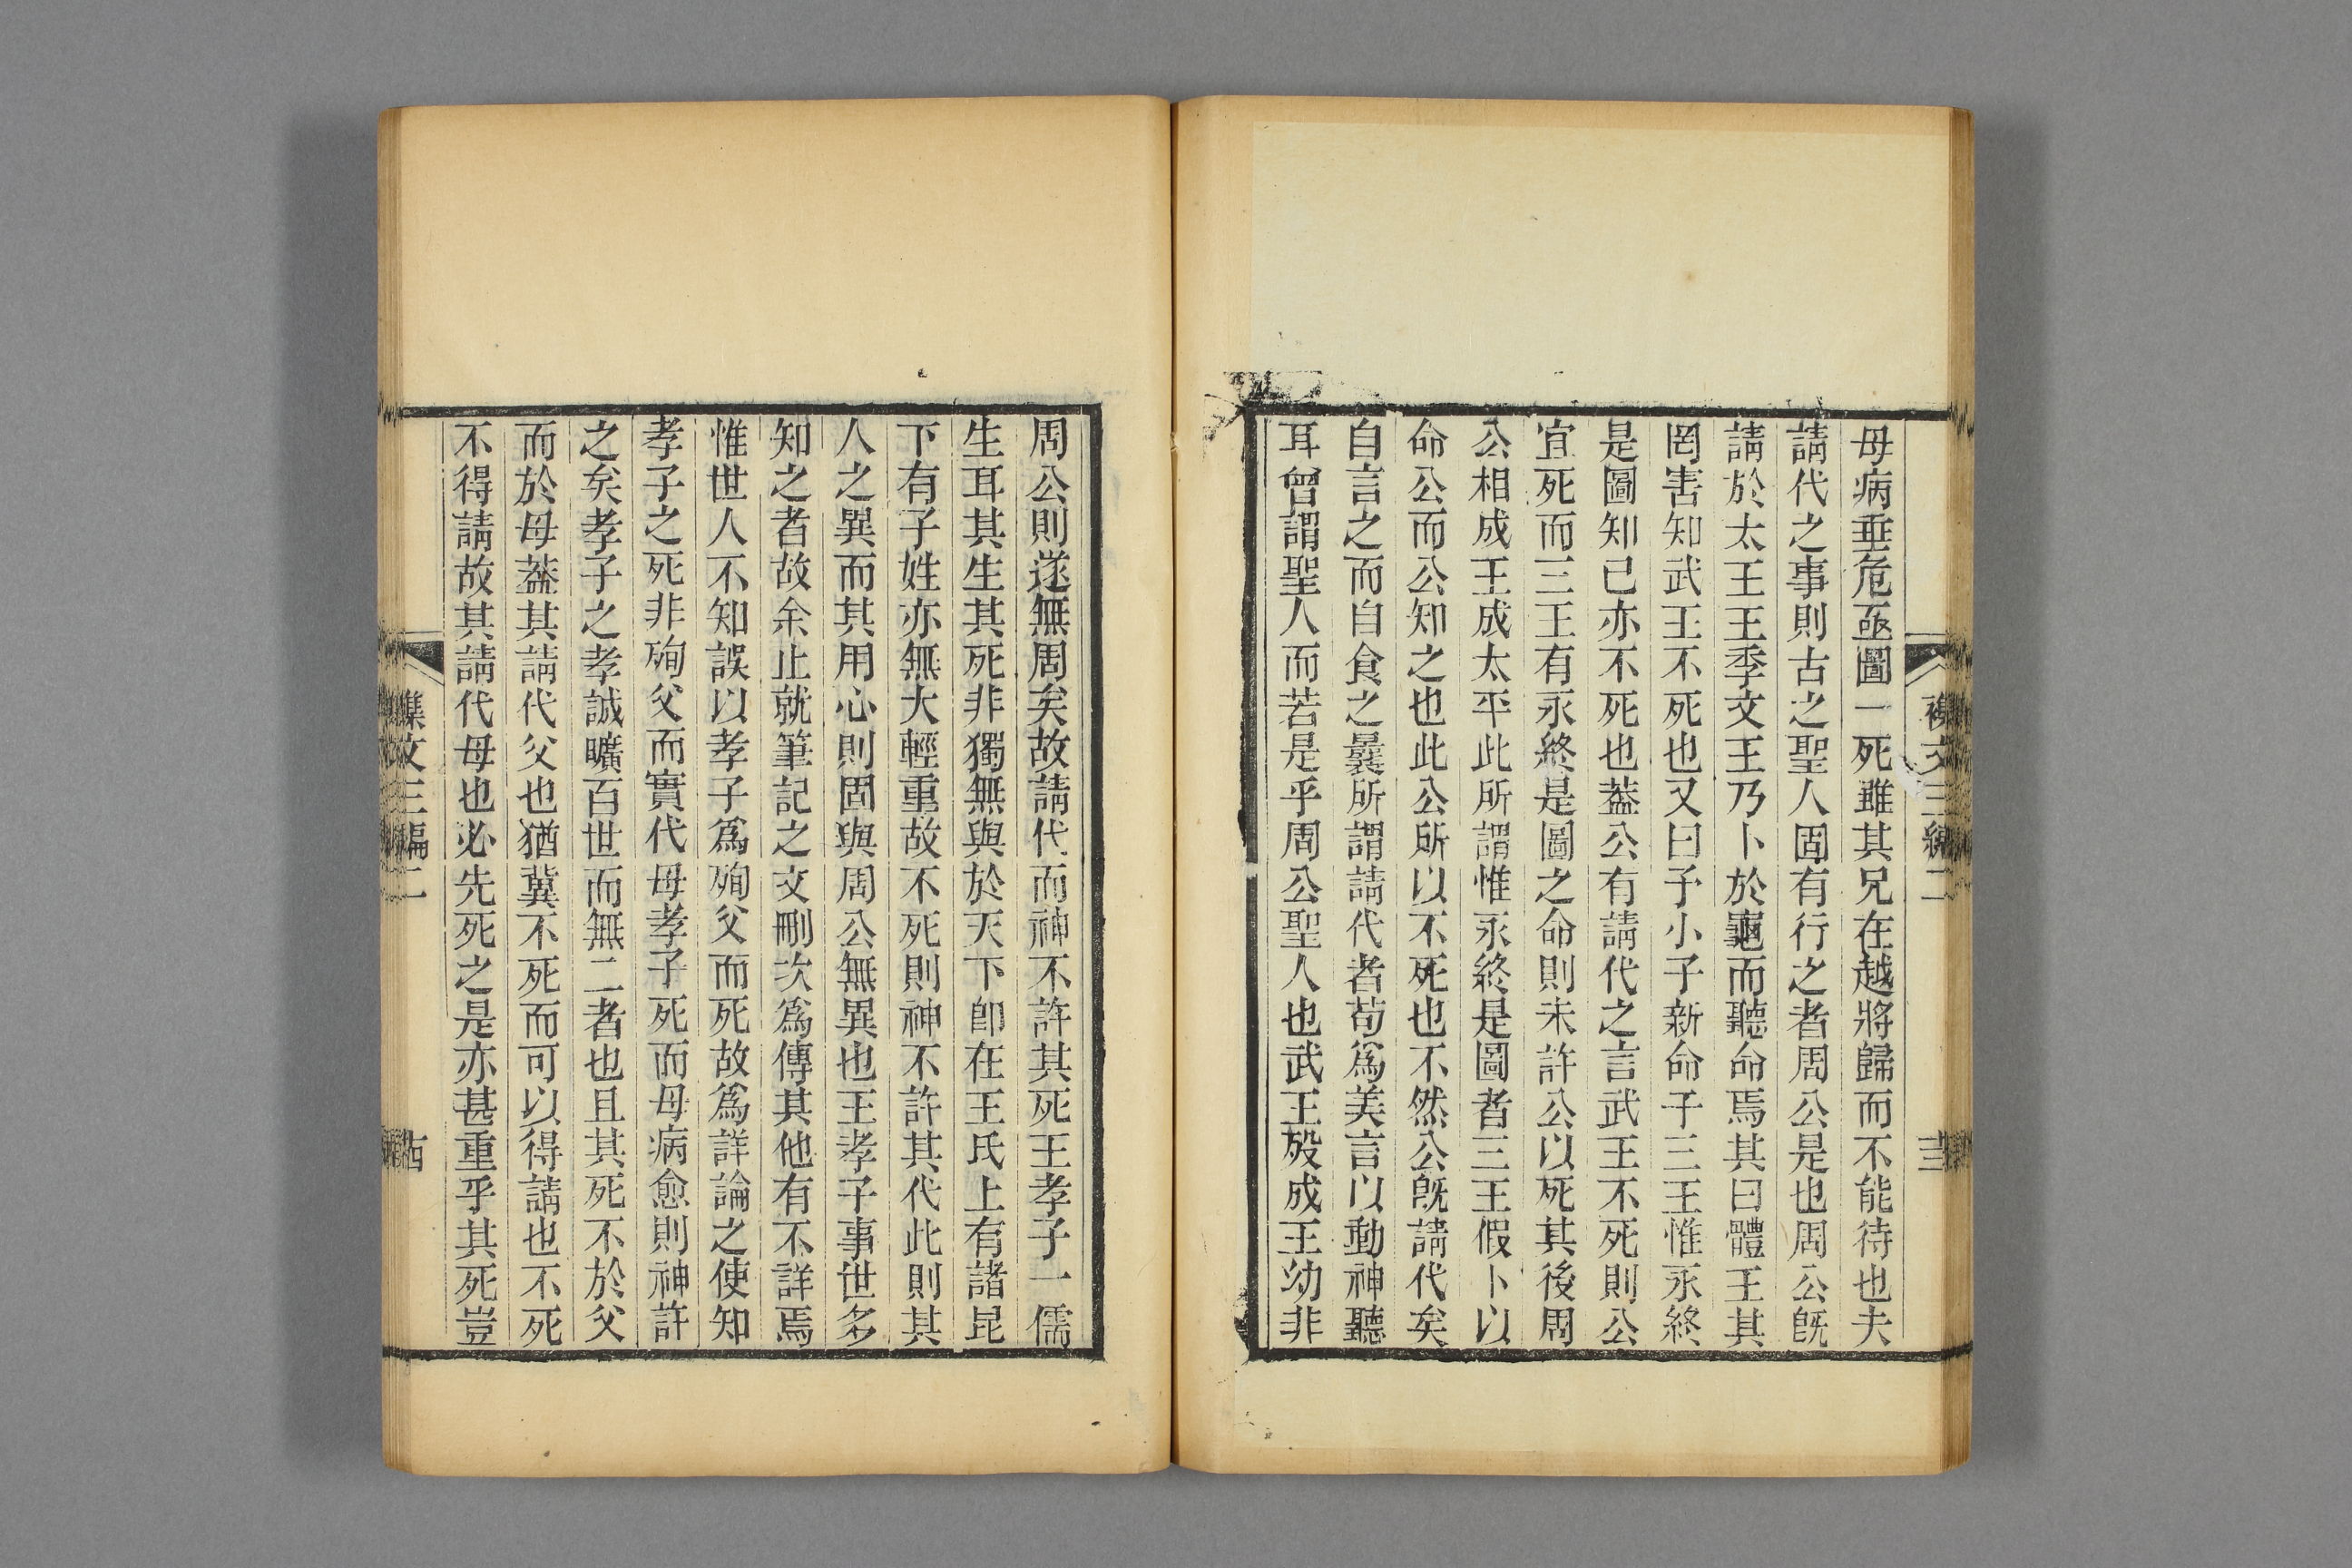 母病垂危亟圖一死雖其兄在越將歸而不能待也夫
請代之事則古之聖人固有行之者周公是也周公既
請於太王王季文王乃卜於龜而聽命焉其曰體王其
罔害知武王不死也又曰予小子新命于三王惟永終
是圖知己亦不死也葢公有請代之言武王不死則公
宜死而三王有永終是圖之命則未許公以死其後周
公相成王成太平此所謂惟永終是圖者三王假卜以
命公而公知之也此公所以不死也不然公既請代矣
自言之而自食之曩所謂請代者苟爲美言以動神聽
耳曾謂聖人而若是乎周公聖人也武王歿成王幼非
周公則遂無周矣故請代而神不許其死王孝子一儒
生耳其生其死非獨無與於天下卽在王氏上有諸昆
下有子姓亦無大輕重故不死則神不許其代此則其
人之異而其用心則固與周公無異也王孝子事世多
知之者故余止就筆記之文刪次爲傳其他有不詳焉
惟世人不知誤以孝子爲殉父而死故爲詳論之使知
孝子之死非殉父而實代母孝子死而母病愈則神許
之矣孝子之孝誠曠百世而無二者也且其死不於父
而於母葢其請代父也猶冀不死而可以得請也不死
不得請故其請代母也必先死之是亦甚重乎其死豈